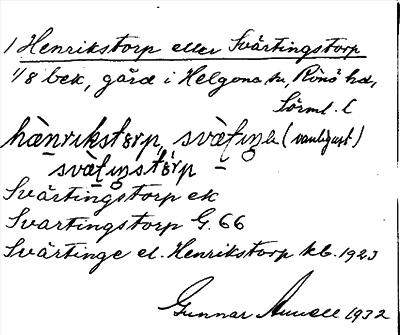 1 Henrikstorp eller Svärtingstorp
1/8 bek, gård i Helgona sn, Rönö hd,
Sörml. l
hànrikstɵrp, svàʈiŋe (vanligast)
svàʈiŋstɵrp
Svärtingstorp ek
Svartingstorp G. 66
Svärtinge el. Henrikstorp kb. 1923
Gunnar 1932